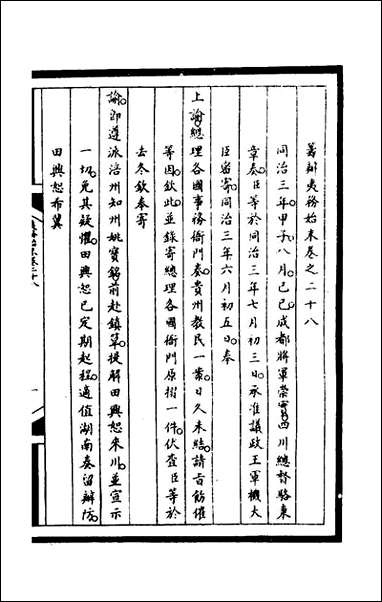 籌辦夷務始末卷之二十八
同治三年甲子八月己巳成都將軍崇實四川總督駱秉
章奏臣等於同治三年七月初三日承准議政王軍機大
臣密寄同治三年六月初五日奉
上諭總理各國事務衙門奏貴州教民一案日久未結請旨飭催
等因欽此並錄寄總理各國衙門原摺一件伏查臣等於
去冬欽奉寄
諭即遵派涪州知州姚寶銘前赴鎮筸提解田興恕來川並宣示
一切免其疑懼田興恕已定期起程適值湖南奏留辦防
田興恕布翼